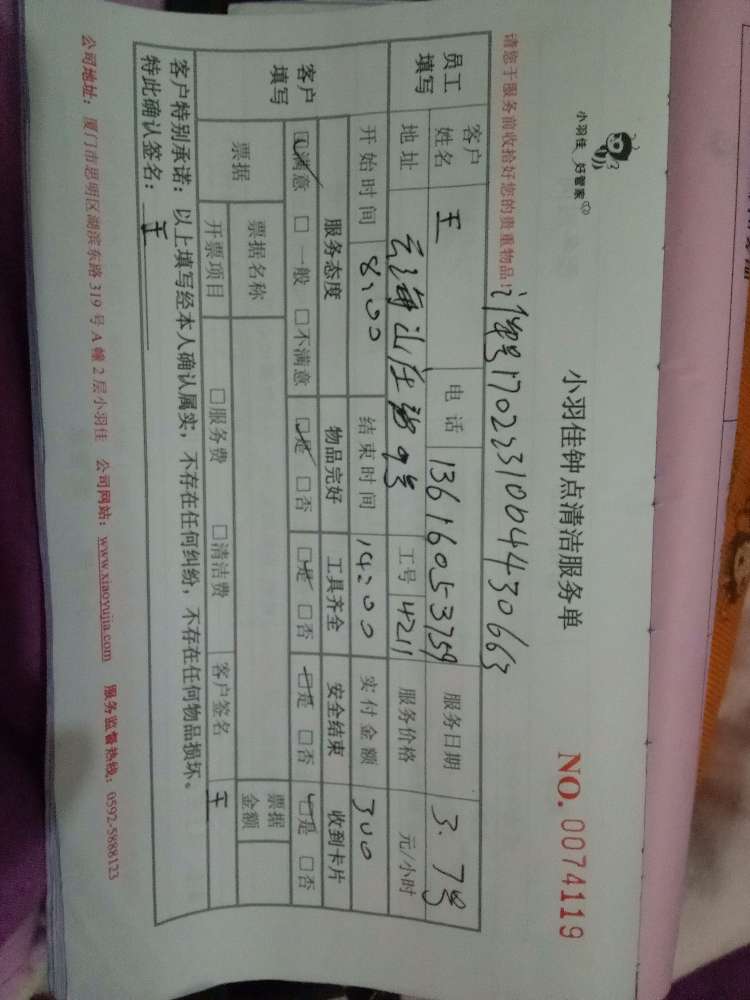 小羽佳 好管家
小羽佳钟点清洁服务单
NO. 0074119
请您于服务前收拾好您的贵重物品!
170223100443066
员工填写 客户姓名 王 电话 13616053759 服务日期 3.7号
地址 云海山庄 9号 工号 4211 服务价格 元/小时
开始时间 8:00 结束时间 14:00 实付金额 300
客户填写 服务态度 物品完好 工具齐全 安全结束 收到卡片
☑满意 □一般 □不满意 ☑是 □否 ☑是 □否 ☑是 □否 ☑是 □否
票据 票据名称 票据金额
开票项目 □服务费 □清洁费 客户签名 王
客户特别承诺：以上填写经本人确认属实，不存在任何纠纷，不存在任何物品损坏。
特此确认签名：王
公司地址：厦门市思明区湖滨东路 319 号 A 幢 2 层小羽佳 公司网站：www.xiaoyujia.com 服务监督热线：0592-5888123